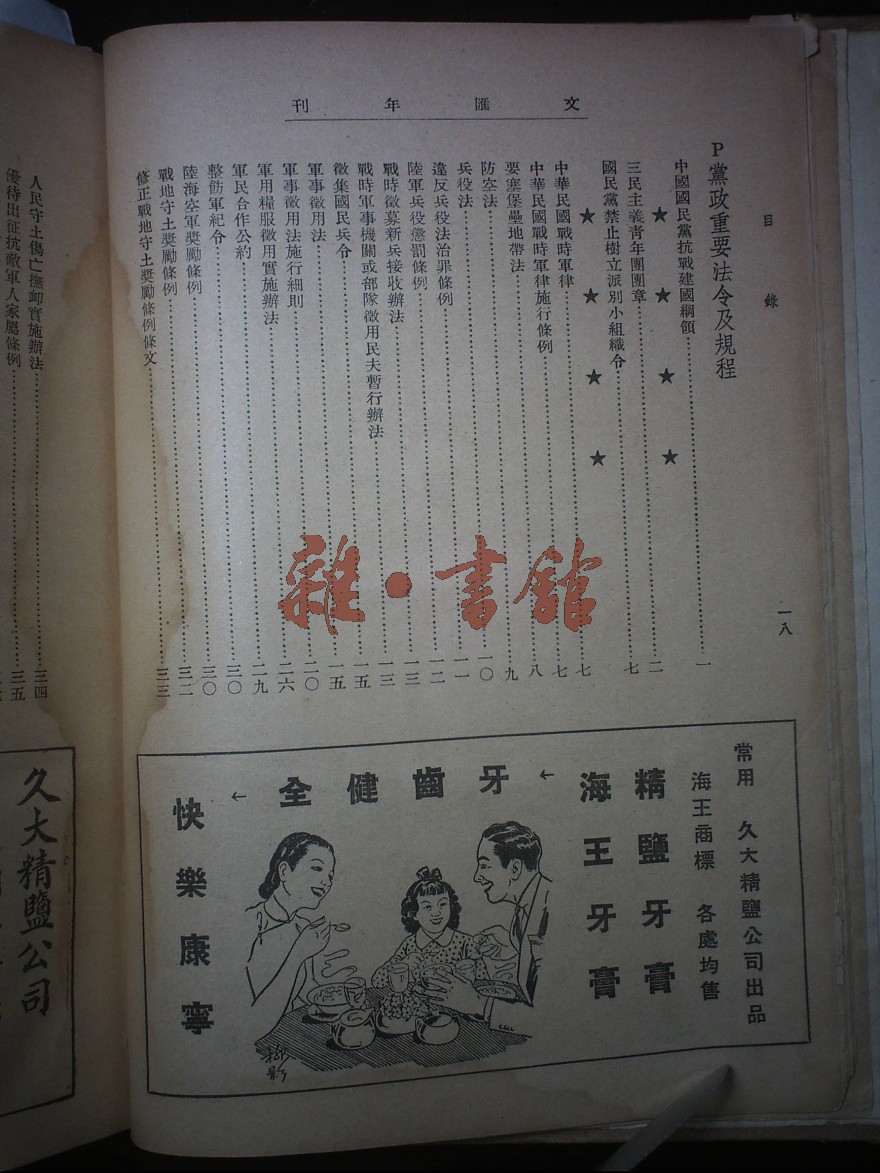 文匯年刊
目錄
一八
P黨政重要法令及規程
中國國民黨抗戰建國綱領……一
★ ★ ★ ★
三民主義青年團團章……二
國民黨禁止樹立派別小組織令……七
★ ★ ★ ★
中華民國戰時軍律……七
中華民國戰時軍律施行條例……八
要塞堡壘地帶法……九
防空法……一〇
兵役法……一一
違反兵役法治罪條例……一二
陸軍兵役懲罰條例……一三
戰時徵募新兵接收辦法……一三
戰時軍事機關或部隊徵用民夫暫行辦法……一五
徵集國民兵令……一五
軍事徵用法……二〇
軍事徵用法施行細則……二六
軍用糧服徵用實施辦法……二九
軍民合作公約……三〇
整飭軍紀令……三〇
陸海空軍獎勵條例……三二
戰地守土獎勵條例……三三
修正戰地守土獎勵條例條文
人民守土傷亡撫卹實施辦法……三四
優待出征抗敵軍人家屬條例……三五
雜·書館
常用 久大精鹽公司出品
海王商標 各處均售
精鹽牙膏
海王牙膏
↓
牙齒健全
↓
快樂康寧
久大精鹽公司